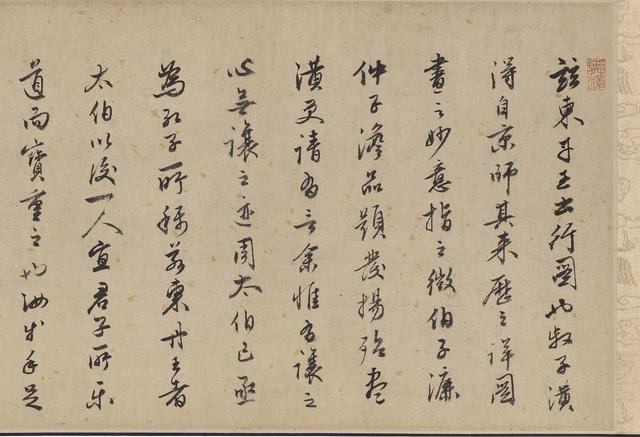 玆東丹王出行圖也叔子潢
得自京師其來歷之詳圖
畫之妙意指之微伯子濂
仲子澹品題發揚殆盡
潢更請為言余惟為讓之
心無讓之迹周太伯已亟
為孔子所稱若東丹王者
太伯以後一人宜君子所樂
道而寶重之也汝等手足